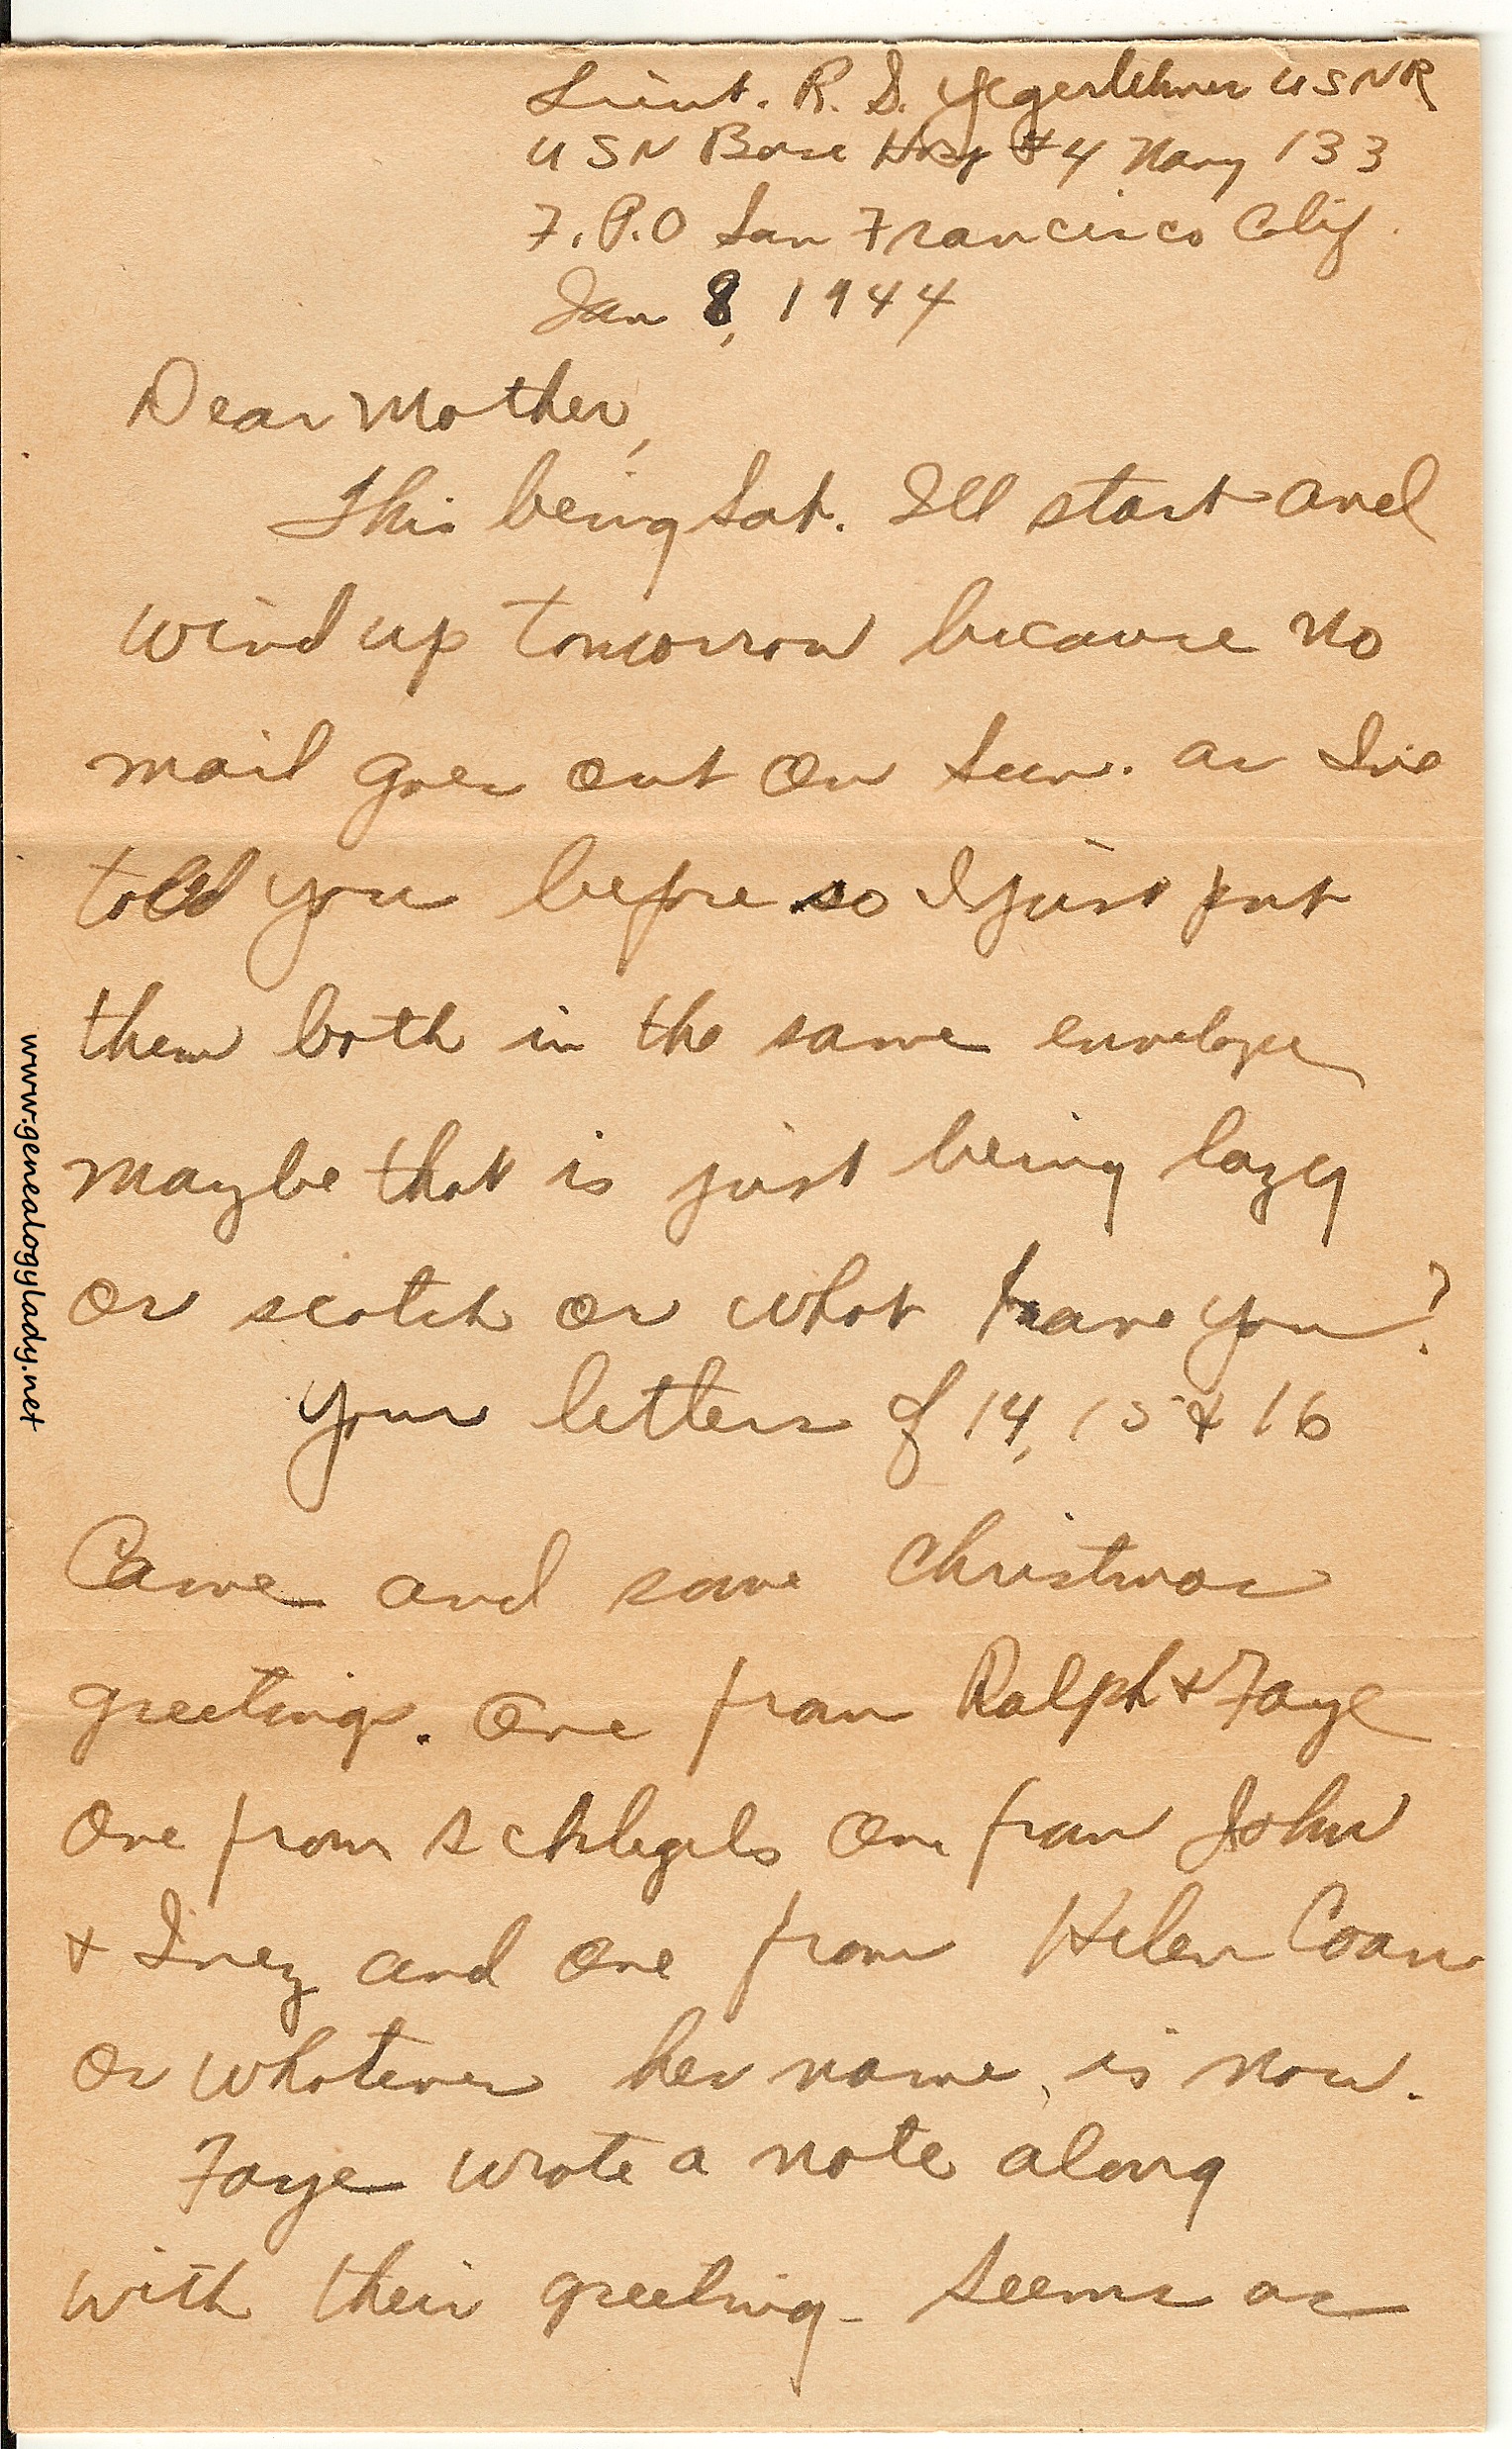 Lieut. R. S. Yegerlehner USNR
USN Base Hosp #4 Navy 133
F.P.O San Francisco Calif.
Jan 8, 1944
Dear Mother,
This being Sat. I'll start and
wind up tomorrow because no
mail goes out on Sun. as I've
told you before so I just put
them both in the same envelope
maybe that is just being lazy
or scotch or what have you?
Your letters of 14, 15 & 16
Came and some Christmas
greetings. One from Ralph & Faye
One from Schlegels One from John
& Inez and one from Helen Coan
or whatever her name is now.
Faye wrote a note along
with their greeting - Seems as
www.genealogylady.net